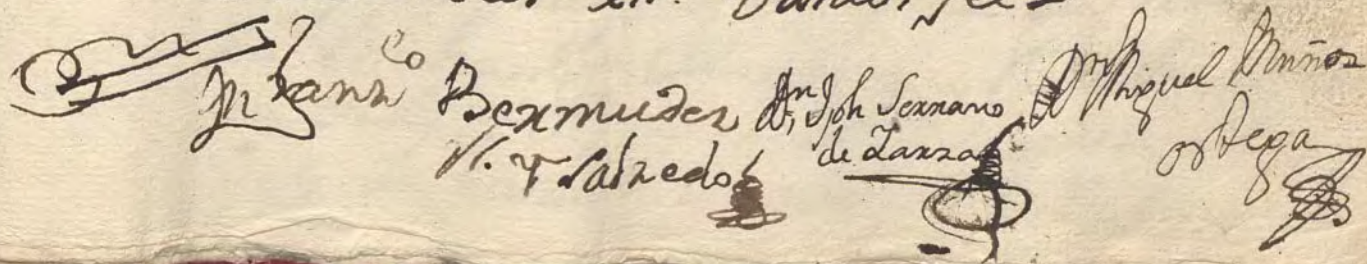 Franco Bermudez
y Salzedo
Dn Jph Serrano
de Zanza
Dn Miguel Muñoz
ortega